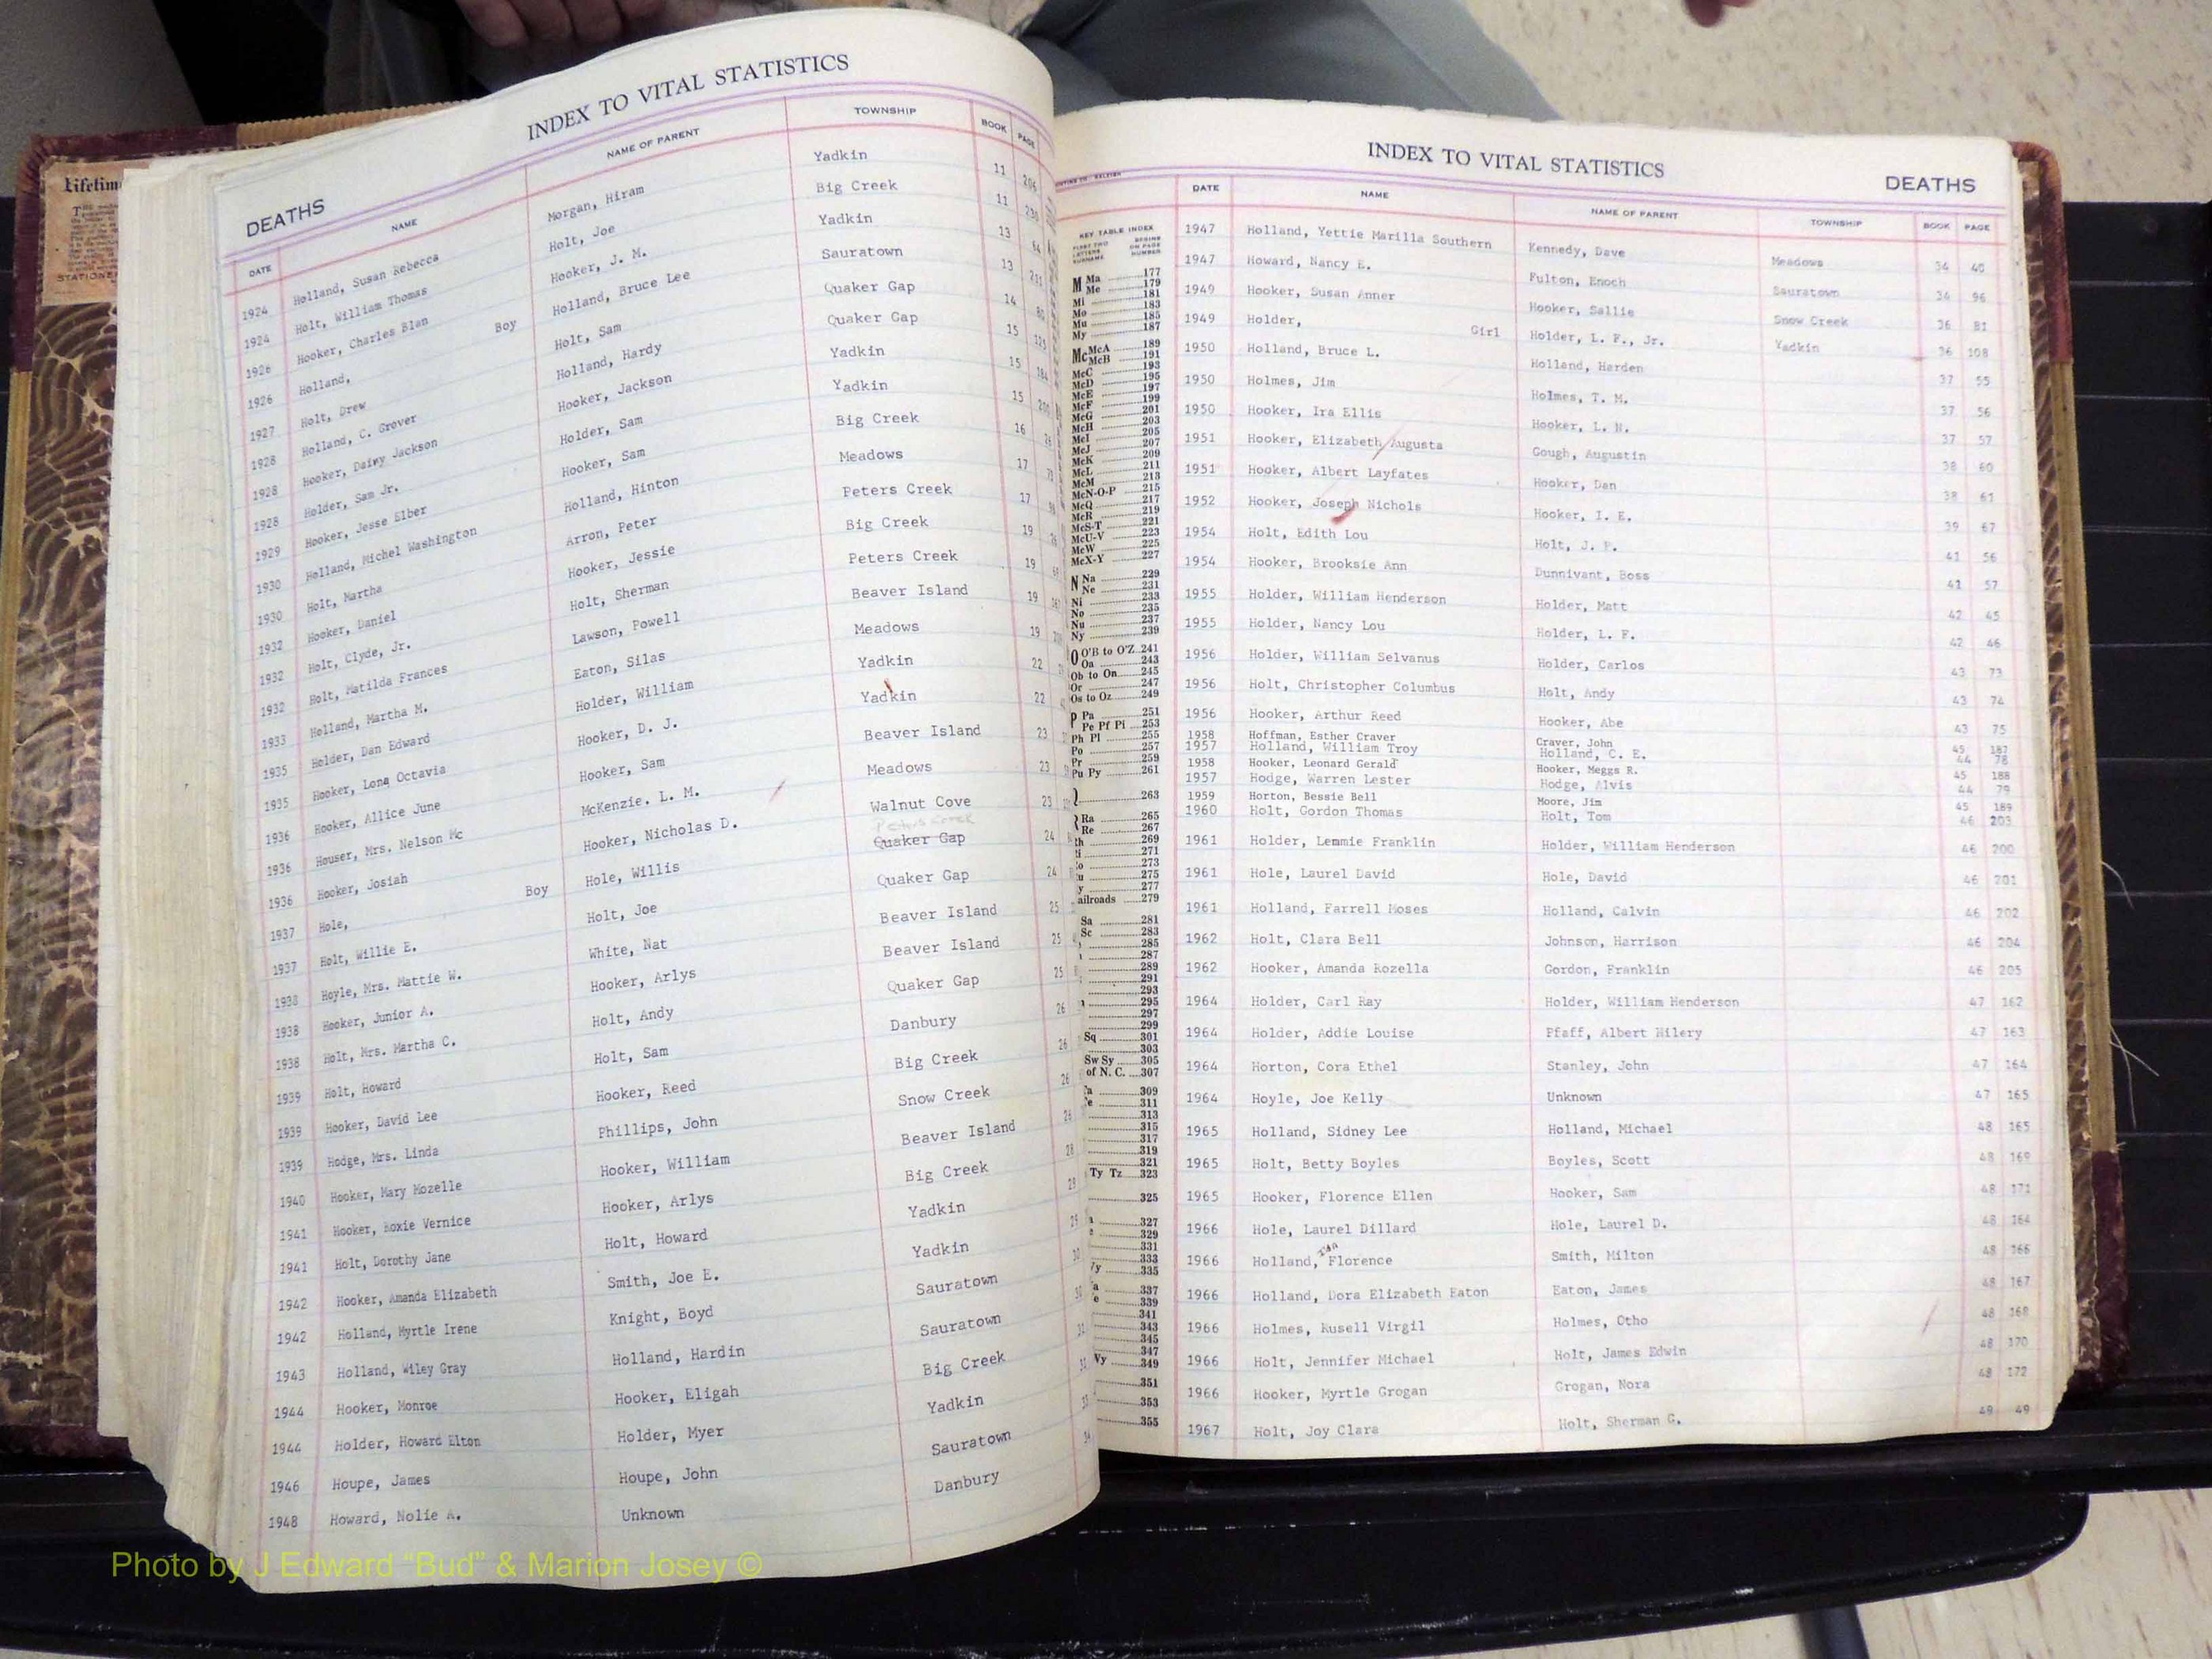 INDEX TO VITAL STATISTICS
DEATHS
DATE NAME NAME OF PARENT TOWNSHIP BOOK PAGE
1924 Holland, Susan Rebecca Morgan, Hiram Yadkin 11 206
1924 Holt, William Thomas Holt, Joe Big Creek 11 230
1926 Hooker, Charles Blan Hooker, J. M. Yadkin 13 64
1926 Holland, Boy Holland, Bruce Lee Sauratown 13 211
1927 Holt, Drew Holt, Sam Quaker Gap 14 80
1928 Holland, C. Grover Holland, Hardy Quaker Gap 15 125
1928 Hooker, Dainy Jackson Hooker, Jackson Yadkin 15 184
1928 Holder, Sam Jr. Holder, Sam Yadkin 15
1929 Hooker, Jesse Elber Hooker, Sam Big Creek 16
1930 Holland, Michel Washington Holland, Hinton Meadows 17
1930 Holt, Martha Arron, Peter Peters Creek 17
1932 Hooker, Daniel Hooker, Jessie Big Creek 19
1932 Holt, Clyde, Jr. Holt, Sherman Peters Creek 19
1932 Holt, Matilda Frances Lawson, Powell Beaver Island 19
1933 Holland, Martha M. Eaton, Silas Meadows 19
1935 Holder, Dan Edward Holder, William Yadkin 22
1935 Hooker, Lona Octavia Hooker, D. J. Yadkin 22
1936 Hooker, Allice June Hooker, Sam Beaver Island 23
1936 Houser, Mrs. Nelson Mc McKenzie. L. M. Meadows 23
1936 Hooker, Josiah Hooker, Nicholas D. Walnut Cove 23
Peters Creek
1937 Hole, Boy Hole, Willis Quaker Gap 24
1937 Holt, Willie E. Holt, Joe Quaker Gap 24
1938 Hoyle, Mrs. Mattie W. White, Nat Beaver Island 25
1938 Hooker, Junior A. Hooker, Arlys Beaver Island 25
1938 Holt, Mrs. Martha C. Holt, Andy Quaker Gap 25
1939 Holt, Howard Holt, Sam Danbury 26
1939 Hooker, David Lee Hooker, Reed Big Creek 26
1939 Hodge, Mrs. Linda Phillips, John Snow Creek 26
1940 Hooker, Mary Mozelle Hooker, William Beaver Island 26
1941 Hooker, Roxie Vernice Hooker, Arlys Big Creek 28
1941 Holt, Dorothy Jane Holt, Howard Yadkin
1942 Hooker, Amanda Elizabeth Smith, Joe E. Yadkin
1942 Holland, Myrtle Irene Knight, Boyd Sauratown
1943 Holland, Wiley Gray Holland, Hardin Sauratown
1944 Hooker, Monroe Hooker, Eligah Big Creek
1944 Holder, Howard Elton Holder, Myer Yadkin
1946 Houpe, James Houpe, John Sauratown
1948 Howard, Nolie A. Unknown Danbury
INDEX TO VITAL STATISTICS
DEATHS
DATE NAME NAME OF PARENT TOWNSHIP BOOK PAGE
1947 Holland, Yettie Marilla Southern Kennedy, Dave Meadows 34 40
1947 Howard, Nancy E. Fulton, Enoch Sauratown 34 96
1949 Hooker, Susan Anner Hooker, Sallie Snow Creek 36 81
1949 Holder, Girl Holder, L. F., Jr. Yadkin 36 108
1950 Holland, Bruce L. Holland, Harden 37 55
1950 Holmes, Jim Holmes, T. M. 37 56
1950 Hooker, Ira Ellis Hooker, L. N. 37 57
1951 Hooker, Elizabeth Augusta Gough, Augustin 38 60
1951 Hooker, Albert Layfates Hooker, Dan 38 61
1952 Hooker, Joseph Nichols Hooker, I. E. 39 67
1954 Holt, Edith Lou Holt, J. F. 41 56
1954 Hooker, Brooksie Ann Dunnivant, Boss 41 57
1955 Holder, William Henderson Holder, Matt 42 45
1955 Holder, Nancy Lou Holder, L. F. 42 46
1956 Holder, William Selvanus Holder, Carlos 43 73
1956 Holt, Christopher Columbus Holt, Andy 43 74
1956 Hooker, Arthur Reed Hooker, Abe 43 75
1958 Hoffman, Esther Craver Craver, John 45 187
1957 Holland, William Troy Holland, C. E. 44 78
1958 Hooker, Leonard Gerald Hooker, Meggs R. 45 188
1957 Hodge, Warren Lester Hodge, Alvis 44 79
1959 Horton, Bessie Bell Moore, Jim 45 189
1960 Holt, Gordon Thomas Holt, Tom 46 203
1961 Holder, Lemmie Franklin Holder, William Henderson 46 200
1961 Hole, Laurel David Hole, David 46 201
1961 Holland, Farrell Moses Holland, Calvin 46 202
1962 Holt, Clara Bell Johnson, Harrison 46 204
1962 Hooker, Amanda Rozella Gordon, Franklin 46 205
1964 Holder, Carl Ray Holder, William Henderson 47 162
1964 Holder, Addie Louise Pfaff, Albert Hilery 47 163
1964 Horton, Cora Ethel Stanley, John 47 164
1964 Hoyle, Joe Kelly Unknown 47 165
1965 Holland, Sidney Lee Holland, Michael 48 165
1965 Holt, Betty Boyles Boyles, Scott 48 169
1965 Hooker, Florence Ellen Hooker, Sam 48 171
1966 Hole, Laurel Dillard Hole, Laurel D. 48 164
1966 Holland, Ida Florence Smith, Milton 48 166
1966 Holland, Dora Elizabeth Eaton Eaton, James 48 167
1966 Holmes, Rusell Virgil Holmes, Otho 48 168
1966 Holt, Jennifer Michael Holt, James Edwin 48 170
1966 Hooker, Myrtle Grogan Grogan, Nora 48 172
1967 Holt, Joy Clara Holt, Sherman G. 49 49
KEY TABLE INDEX
M Ma 177
Me 179
Mi 181
Mo 183
Mu 185
My 187
Mc McA 189
McB 191
McC 193
McD 195
McE 197
McF 199
McG 201
McH 203
McI 205
McJ 207
McK 209
McL 211
McM 213
McN-O-P 215
McQ 217
McR 219
McS-T 221
McU-V 223
McW 225
McX-Y 227
N Na 229
Ne 231
Ni 233
No 235
Nu 237
Ny 239
O O'B to O'Z 241
Oa 243
Ob to On 245
Or 247
Os to Oz 249
P Pa 251
Pe Pf Pi 253
Ph Pl 255
Po 257
Pr 259
Pu Py 261
263
Ra 265
Re 267
269
271
273
275
277
ailroads 279
Sa 281
Sc 283
285
287
289
291
293
295
297
299
Sq 301
303
Sw Sy 305
of N. C. 307
309
311
313
315
317
319
321
Ty Tz 323
325
327
329
331
333
335
337
339
341
343
345
347
Vy 349
351
353
355
Lifetim
STATIONE
Photo by J Edward “Bud” & Marion Josey ©